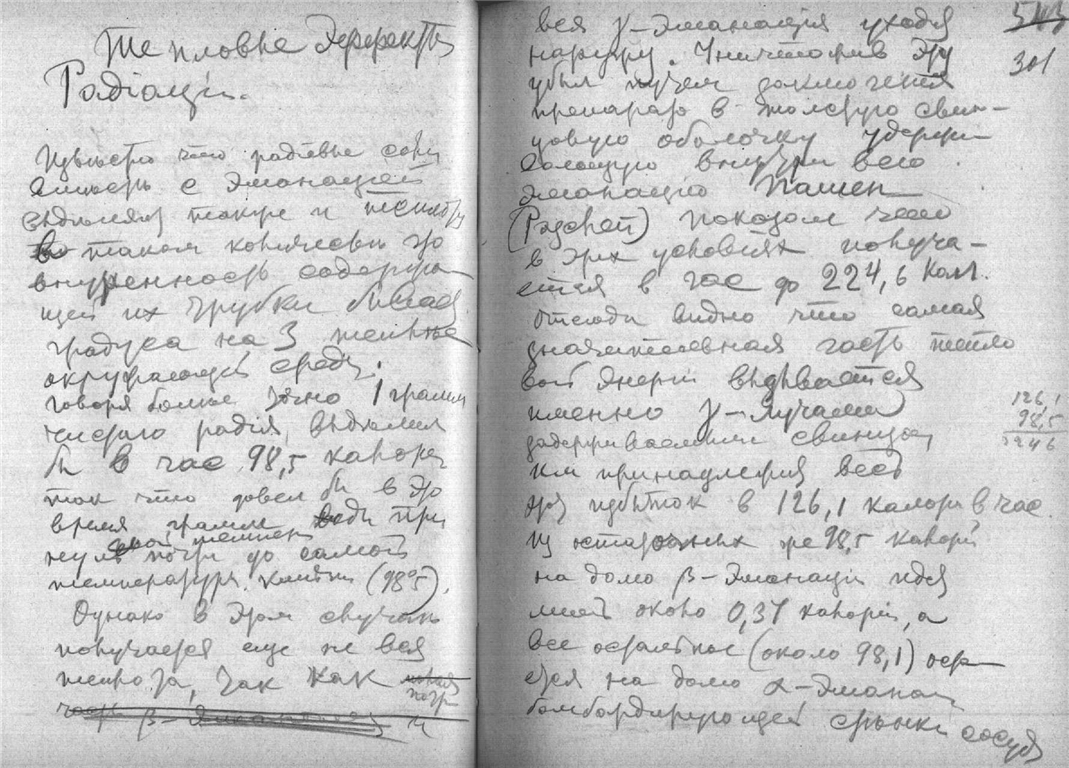 Тепловые Эффекты
Радіаціи.
Извѣстно что радіевые соли
вмѣстѣ с Эманацией
выделяют также и теплоту
в таком количествѣ что
внутренность содержа-
щей их трубки бывает
градуса на 3 теплѣе
окружающей среды.
говоря более точно 1 грамм
чистаго радія, выделил
бы в час 98,5 калорій
так что довел бы в это
время грамм воды при
нулѣ почти до самой
температуры кипѣнія (98°5).
Однако в этом случаѣ
получается еще не вся
теплота, так как почти
часть β-Эманаціи и
вся γ-Эманація уходя
наружу. Уничтожив эту
убыль путем заключения
препарата в толстую свин-
цовую оболочку удержи-
вающую внутри всю
эманацію Пашен
(Paschen) показал что
в этих условіях получа-
ется в час до 224,6 кал.
Отсюда видно что самая
значительная часть тепло
вой Энергіи выдѣляется
именно γ-лучами
задерживаемыми свинцом
им принадлежит весь
этот избыток в 126,1 калори в час.
из остальных же 98,5 калорій
на долю β-Эманаціи идя
лишь около 0,37 калорій, а
все остальное (около 98,1) оста-
ется на долю α-Эманаціи
бомбардирующей стѣнки сосуда
301
126,1
98,5
224,6